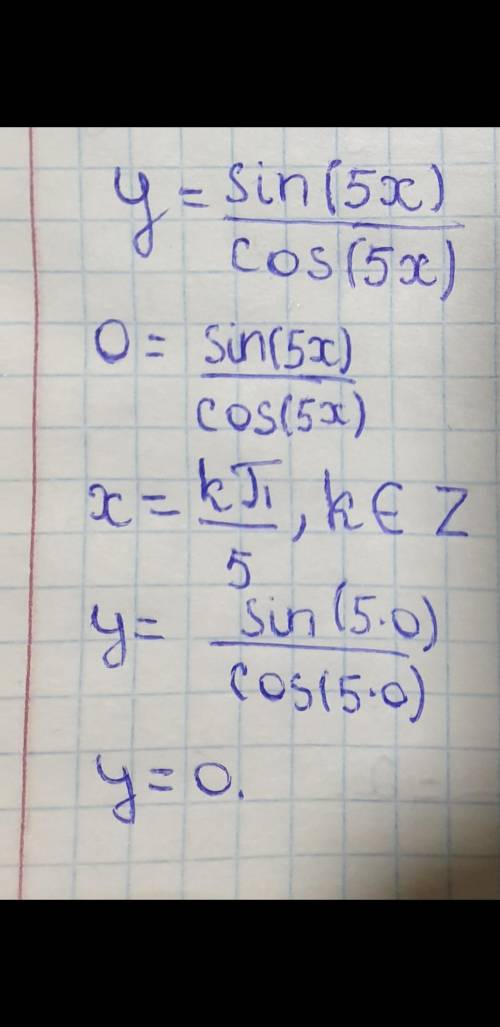 y = sin(5x) / cos(5x)
0 = sin(5x) / cos(5x)
x = kπ / 5, k ∈ Z
y = sin(5·0) / cos(5·0)
y = 0.